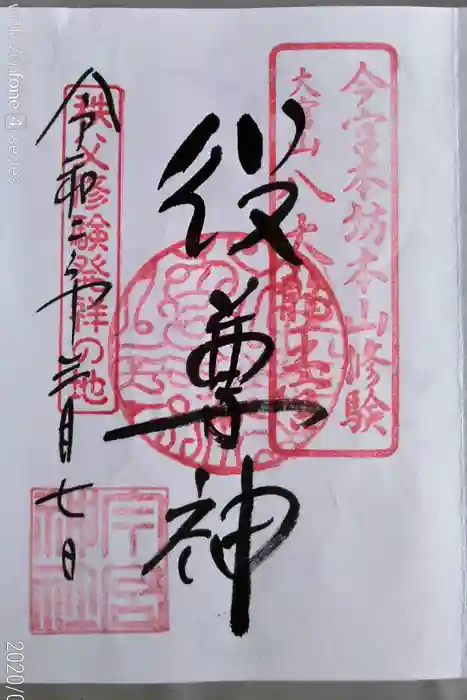 今宮本坊本山修験
大宮山 八大龍王宮
役尊神
秩父修験発祥の地
令和二年三月七日
今宮神社
with Zenfone 4 series